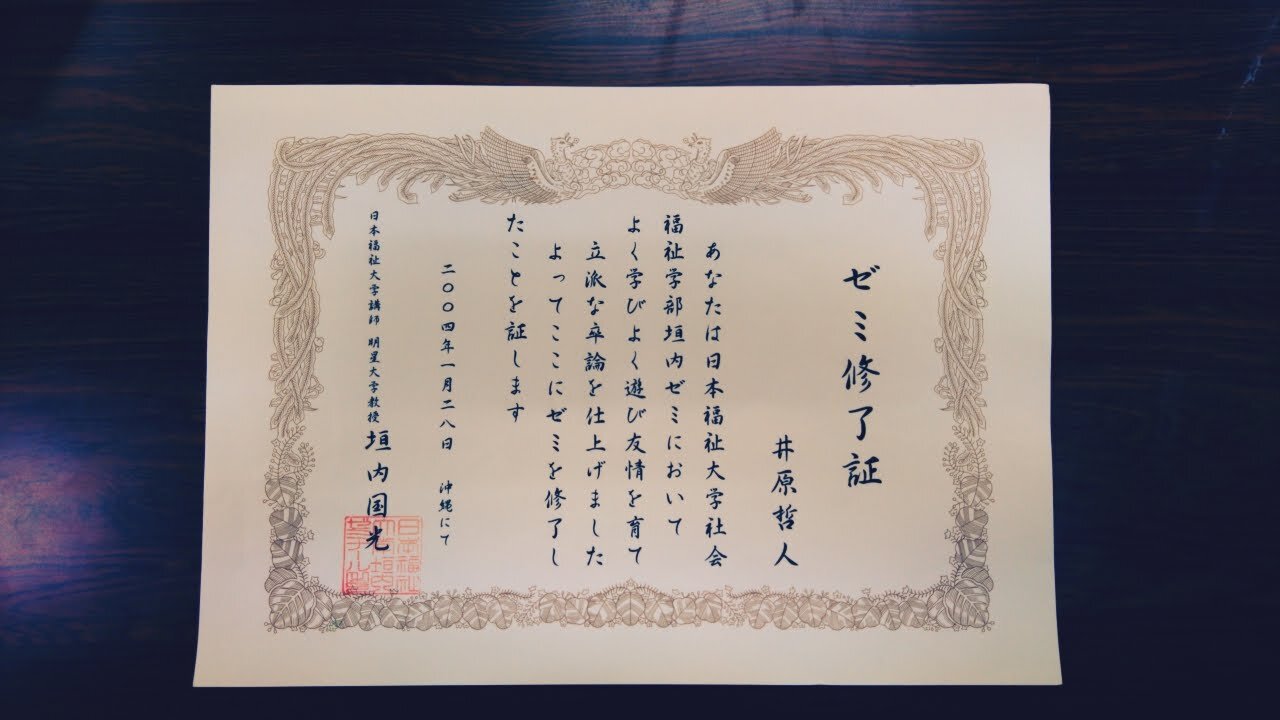 ゼミ修了証
井原哲人
あなたは日本福祉大学社会
福祉学部垣内ゼミにおいて
よく学びよく遊び友情を育て
立派な卒論を仕上げました
よってここにゼミを修了し
たことを証します
二〇〇四年一月二八日 沖縄にて
日本福祉大学講師 明星大学教授 垣内国光